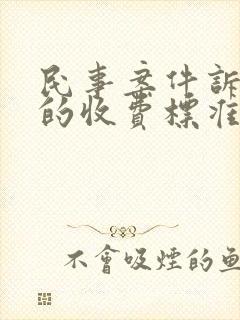 民事案件訴
的收費標准
不會吸煙的魚